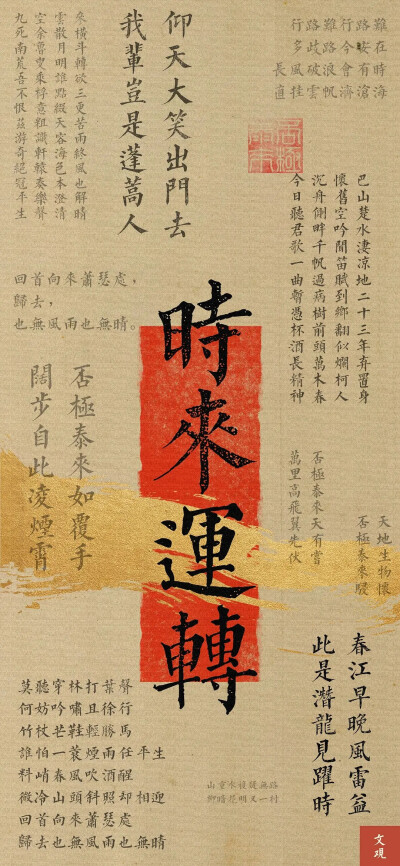 行路難行路難
多歧路今安在
長風破浪會有時
直挂雲帆濟滄海
仰天大笑出門去
我輩豈是蓬蒿人
參橫斗轉欲三更苦雨終風也解晴
雲散月明誰點綴天容海色本澄清
空餘魯叟乘桴意粗識軒轅奏樂聲
九死南荒吾不恨茲游奇絕冠平生
巴山楚水淒涼地二十三年弃置身
懷舊空吟聞笛賦到鄉翻似爛柯人
沉舟側畔千帆過病樹前頭萬木春
今日聽君歌一曲暫憑杯酒長精神
回首向來蕭瑟處,
歸去,
也無風雨也無晴。
時來運轉
否極泰來如覆手
闊步自此淩煙霄
天地生物懷
否極泰來
否極泰來天有嘗
萬里高飛翼先伏
春江早晚風雷益
此是潛龍見躍時
莫聽穿林打葉聲
何妨吟嘯且徐行
竹杖芒鞋輕勝馬
誰怕一蓑煙雨任平生
料峭春風吹酒醒
微冷山頭斜照却相迎
回首向來蕭瑟處
歸去也無風雨也無晴
山重水複疑無路
柳暗花明又一村
文观